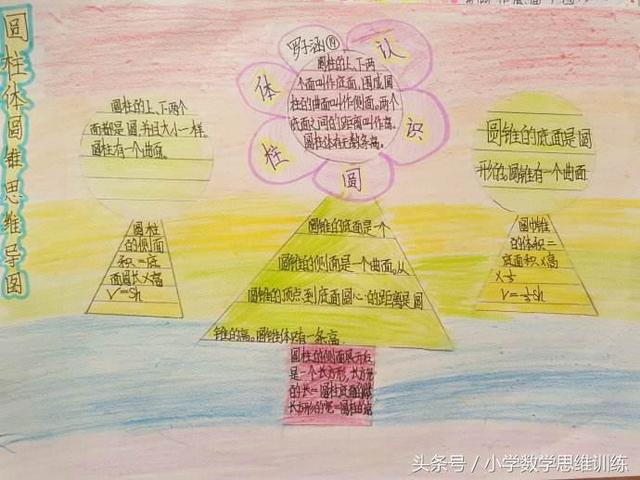 圆柱体圆锥思维导图
罗子涵⑲
认
识
圆
柱
体
圆柱的上、下两
个面叫作底面,围成圆
柱的曲面叫作侧面。两个
底面之间的距离叫作高。
圆柱体有无数条高。
圆柱的上、下两个
面都是圆,并且大小一样
圆柱有一个曲面。
圆锥的底面是圆
形的。圆锥有一个曲面
圆柱
的侧面
积=底
面周长×高
V=Sh
圆锥的底面是一个
圆锥的侧面是一个曲面。从
圆锥的顶点到底面圆心的距离是圆
锥的高。圆锥体只有一条高。
圆锥
的体积=
底面积×高
×⅓
V=⅓Sh
圆柱的侧面展开后
是一个长方形,长方形
的长=圆柱底面的
长方形的宽=圆柱的高
头条号/小学数学思维训练